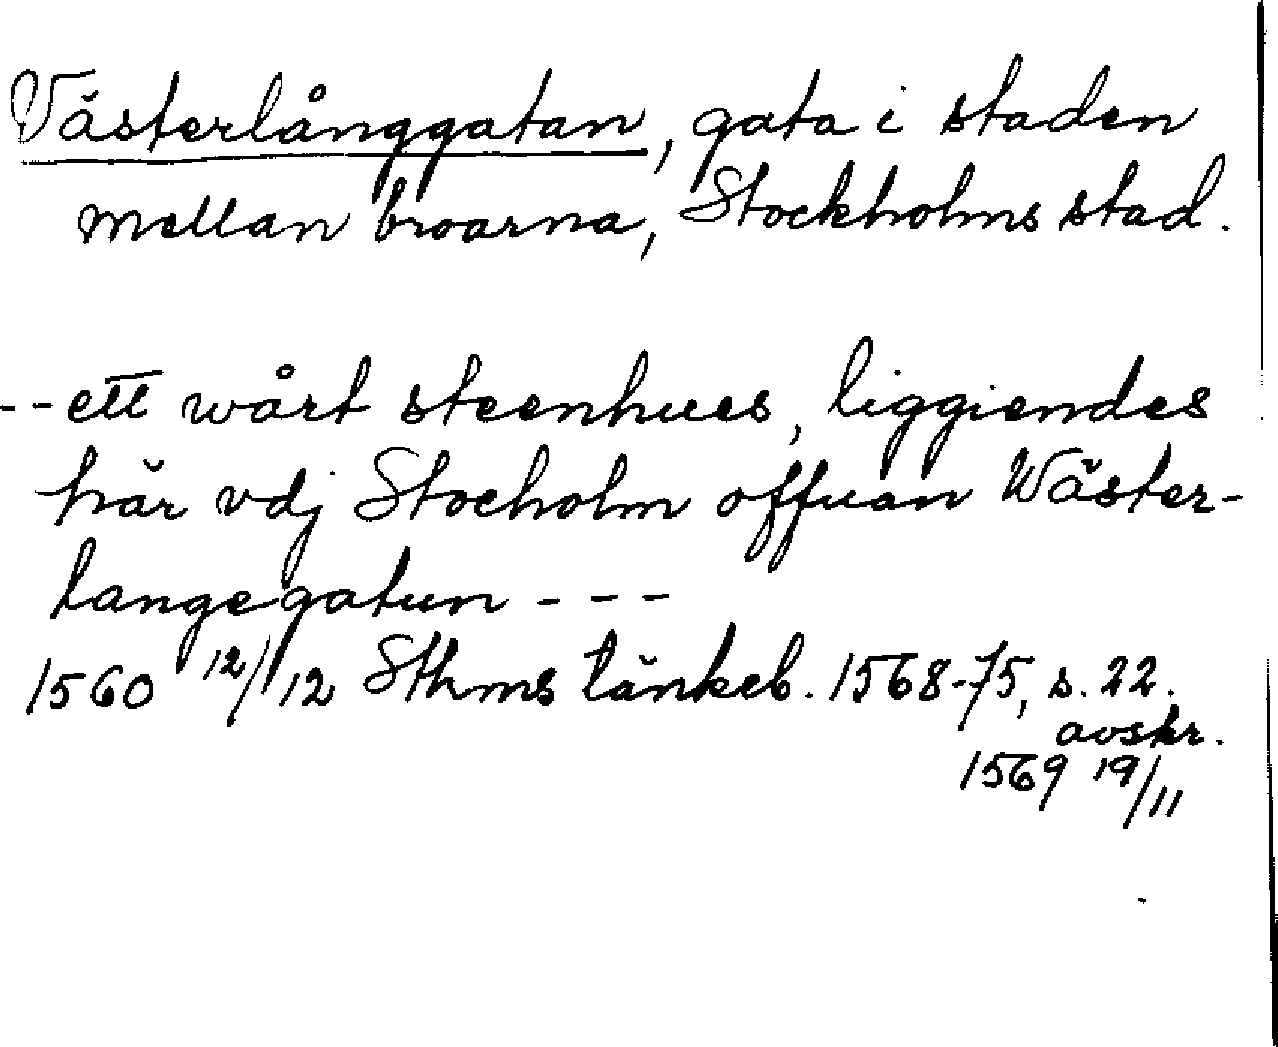 Västerlånggatan, gata i staden
mellan broarna, Stockholms stad.
-- ett wårt steenhues, liggiendes
här vdj Stocholm offuan Wäster-
langegatun ---
1560 12/12 Sthms tänkeb. 1568-75, s. 22.
avskr.
1569 19/11